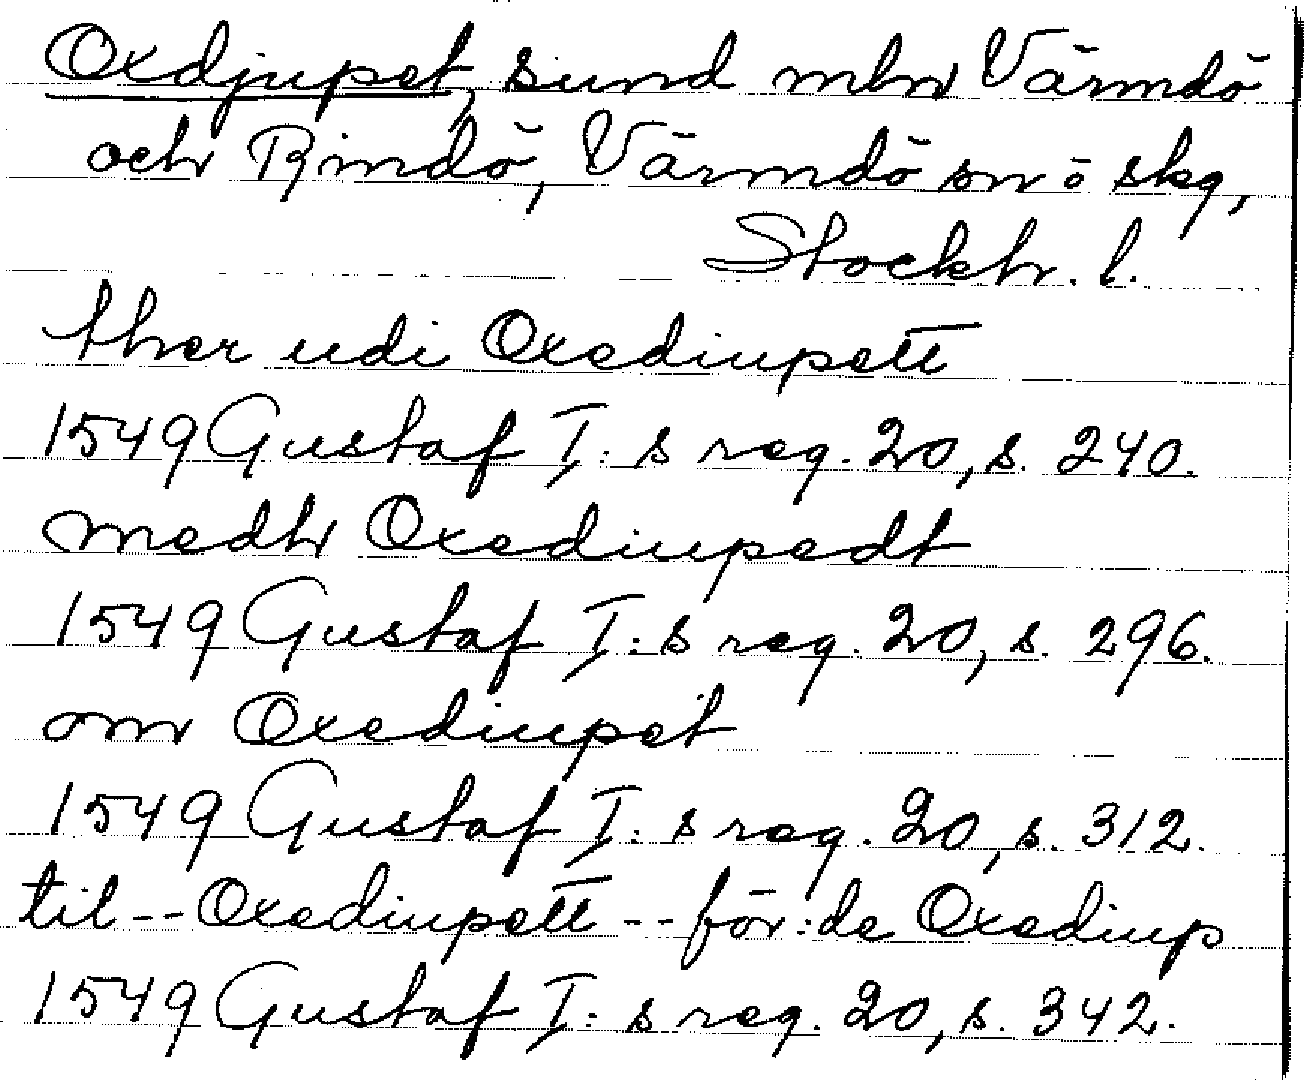 Oxdjupet, sund mln Värmdö
och Rindö, Värmdö sn o skg,
Stockh. l.
ther udi Oxediupett
1549 Gustaf I: s reg. 20, s. 240.
medh Oxediupedt
1549 Gustaf I: s reg. 20, s. 296.
om Oxediupet
1549 Gustaf I: s reg. 20, s. 312.
til -- Oxediupett -- för:de Oxediup
1549 Gustaf I: s reg. 20, s. 342.